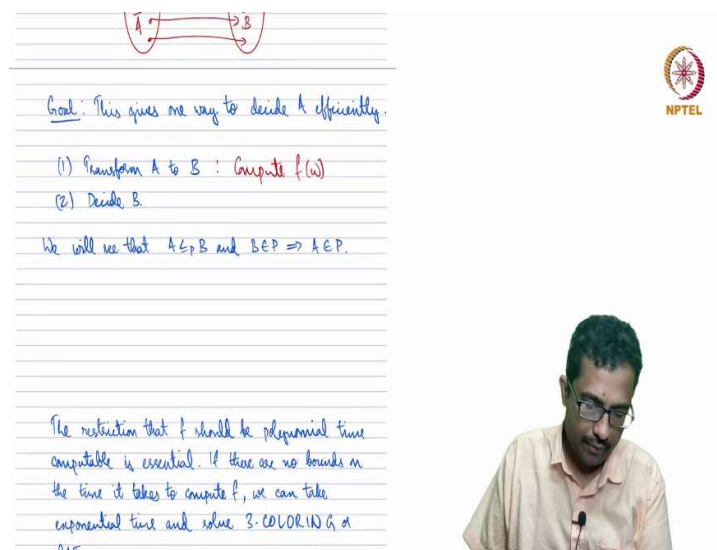 A B
NPTEL
Goal: This gives one way to decide A efficiently.
(1) Transform A to B : Compute f(w)
(2) Decide B.
We will see that A ≤p B and B∈P ⇒ A∈P.
The restriction that f should be polynomial time
computable is essential. If there are no bounds on
the time it takes to compute f, we can take
exponential time and solve 3-COLORING or